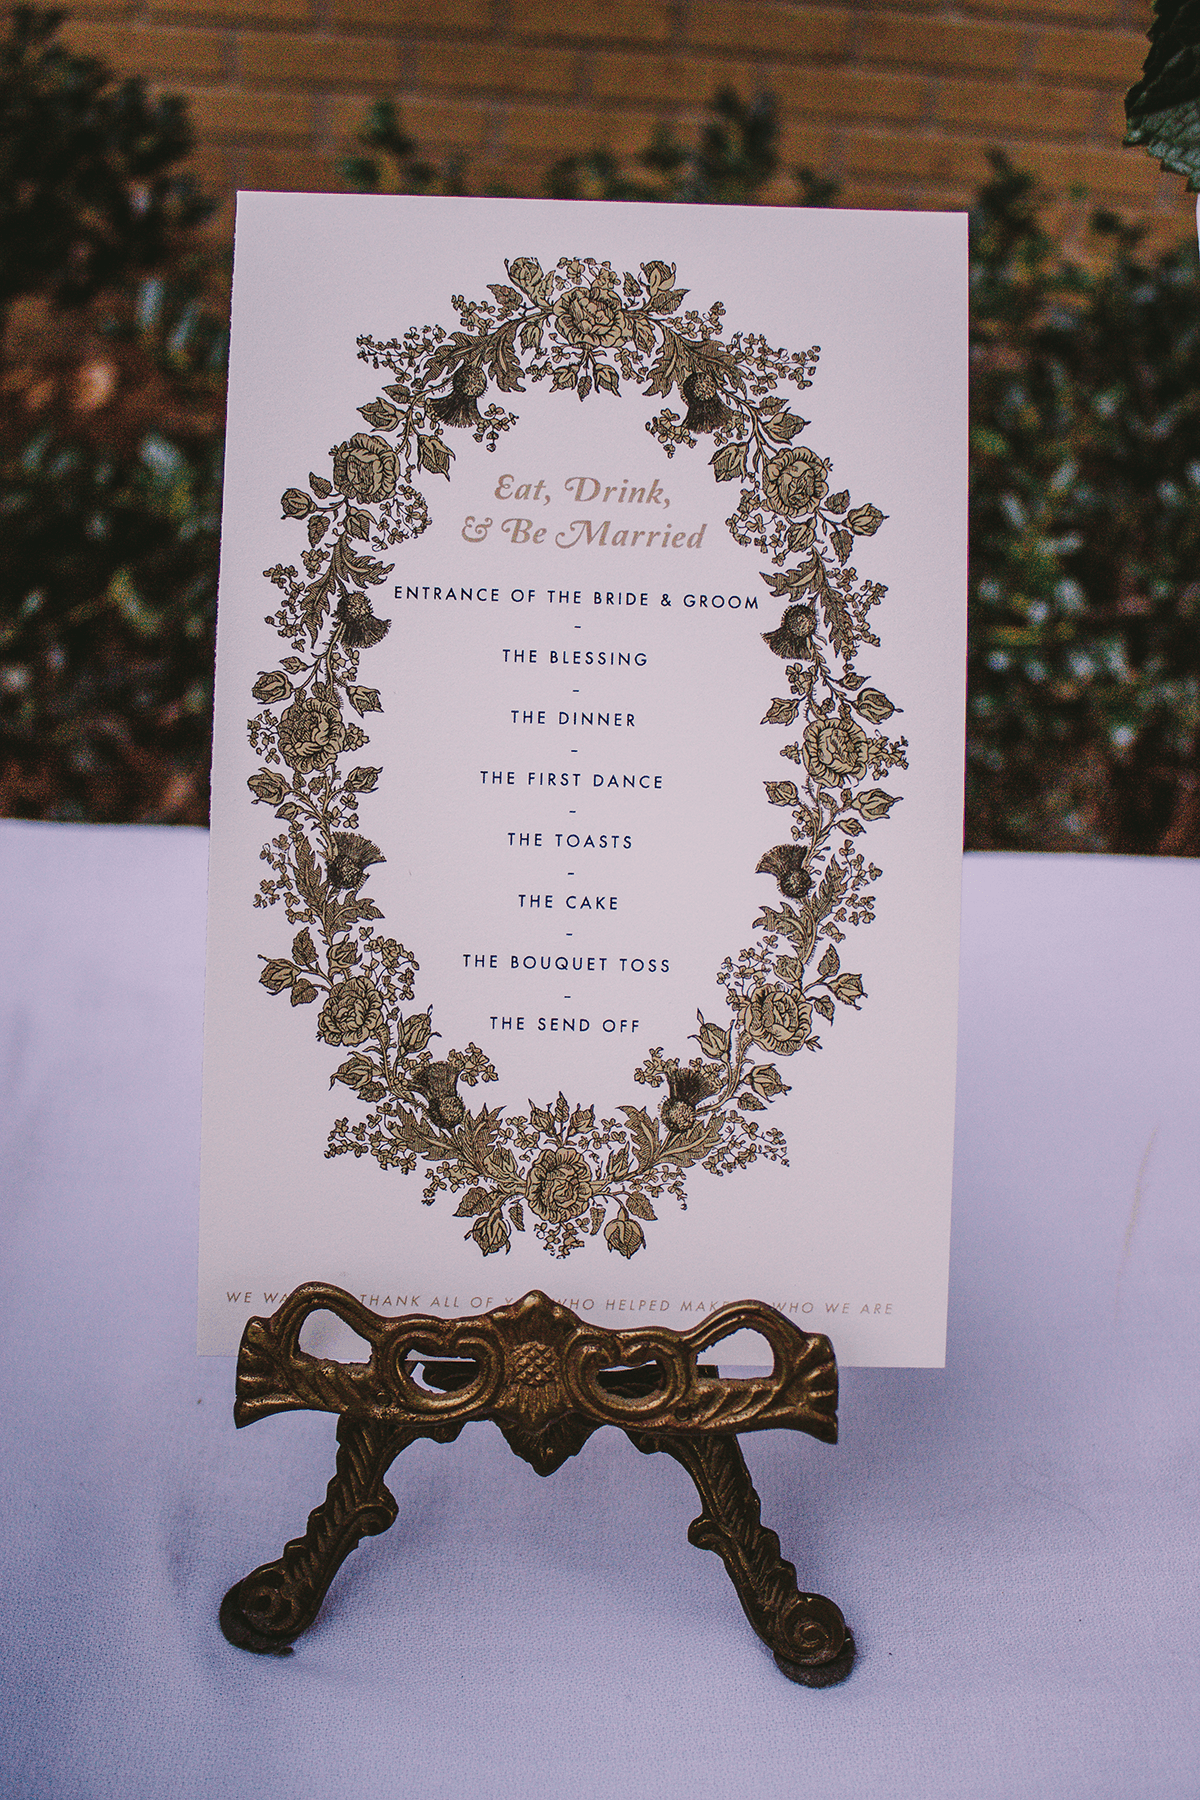 Eat, Drink,
& Be Married
ENTRANCE OF THE BRIDE & GROOM
-
THE BLESSING
-
THE DINNER
-
THE FIRST DANCE
-
THE TOASTS
-
THE CAKE
-
THE BOUQUET TOSS
-
THE SEND OFF
WE THANK ALL OF WHO HELPED MAKE WHO WE ARE